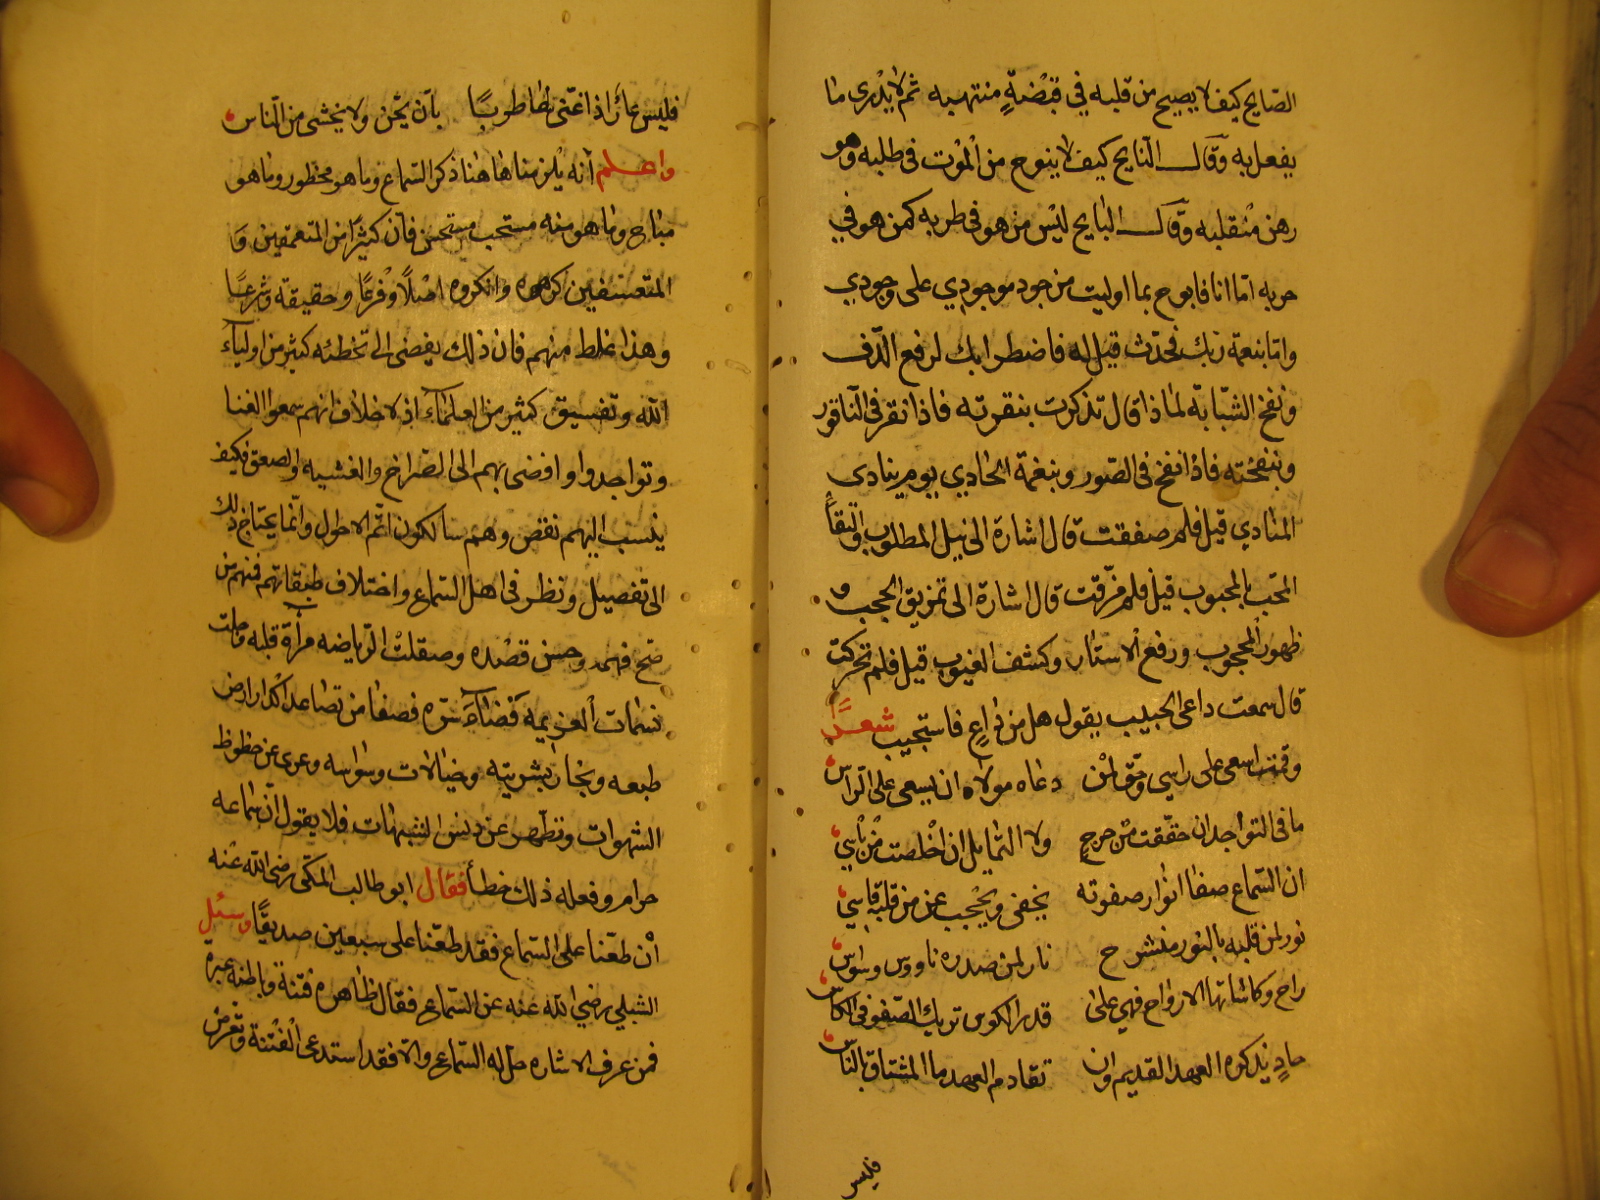 الصايح كيف لا يصيح من قلبه في قبضةٍ منتهبه ثم لا يدري ما
يفعل به وقال النايح كيف لا ينوح من الموت في طلبه وهو
رهن منقلبه وقال البايح ليس من هو في طربه كمن هو في
حربه اما انا فابوح بما اوليت من جود موجودي على وجودي
واما بنعمة ربك فحدث قيل له فاضطرابك لرفع الدف
ونفخ الشبّابة لماذا قال تذكرت بنقرته فاذا نقر في الناقور
وبنفخته فاذا نفخ في الصور وبنغمة الحادي يوم ينادي
المنادي قيل فلم صفقت قال اشارة الى نيل المطلوب والتقاء
المحب بالمحبوب قيل فلم مزّقت قال اشارة الى تمزيق الحجب و
ظهور المحجوب ورفع الاستار وكشف الغيوب قيل فلم تحركت
قال سمعت داعى الحبيب يقول هل من داعٍ فاستجيب شعرًا
وقمت اسعى على راسي وحق لمن دعاه مولاه ان يسعى على الراس
ما فى التواجد ان حققت من حرجٍ ولا التمايل ان اخلصت من باسي
ان السماع صفا انوار صفوته يخفى ويحجب عن من قلبه قاسي
نور لمن قلبه بالنور منشرح نار لمن صدره ناووس وسواس
راح وكاساتها الارواح فهي على قدر الكوس تريك الصفو فى الكاس
حادٍ يذكره العهد القديم وان تقادم العهد ما المشتاق بالناس
فليس
فليس عار اذا غنى لها طربًا بان يحن ولا يخشى من الناس
واعلم أنه يلزمنا هاهنا ذكر السماع وما هو محظور وما هو
مباح وما هو منه مستحب مستحسن فان كثيرًا من المتعمقين و
المتعسفين كرهوه وانكروه اصلًا وفرعًا وحقيقة وشرعًا
وهذا غلط منهم فان ذلك يفضى الى تخطئه كثير من اوليآء
الله وتفسيق كثير من العلمآء اذ لا خلاف انهم سمعوا الغنا
وتواجدوا وافضى بهم الى الصراخ والغشيه والصعق فكيف
ينسب اليهم نقص وهم سالكون اتم الاحوال وانما يحتاج ذلك
الى تفصيل ونظر فى اهل السماع واختلاف طبقاتهم فمنهم من
صح فهمه وحسن قصده وصقلت الرياضه مرآة قلبه وجلت
نسمات العزيمه فضآء سرّه فصفا من تصاعد اكدار ارض
طبعه وبخار بشريته وخيالات وسواسه وعرى عن حظوظ
الشهوات وتطهر عن دنس الشبهات فلا يقول ان سماعه
حرام وفعله ذلك خطأ فقال ابو طالب المكى رضى الله عنه
أن طعّنا على السماع فقد طعّنا على سبعين صديقًا وسئل
الشبلى رضي الله عنه عن السماع فقال ظاهره فتنة وباطنه عبرة
فمن عرف الاشاره حل له السماع والا فقد استدعى الفتنة وتعرض